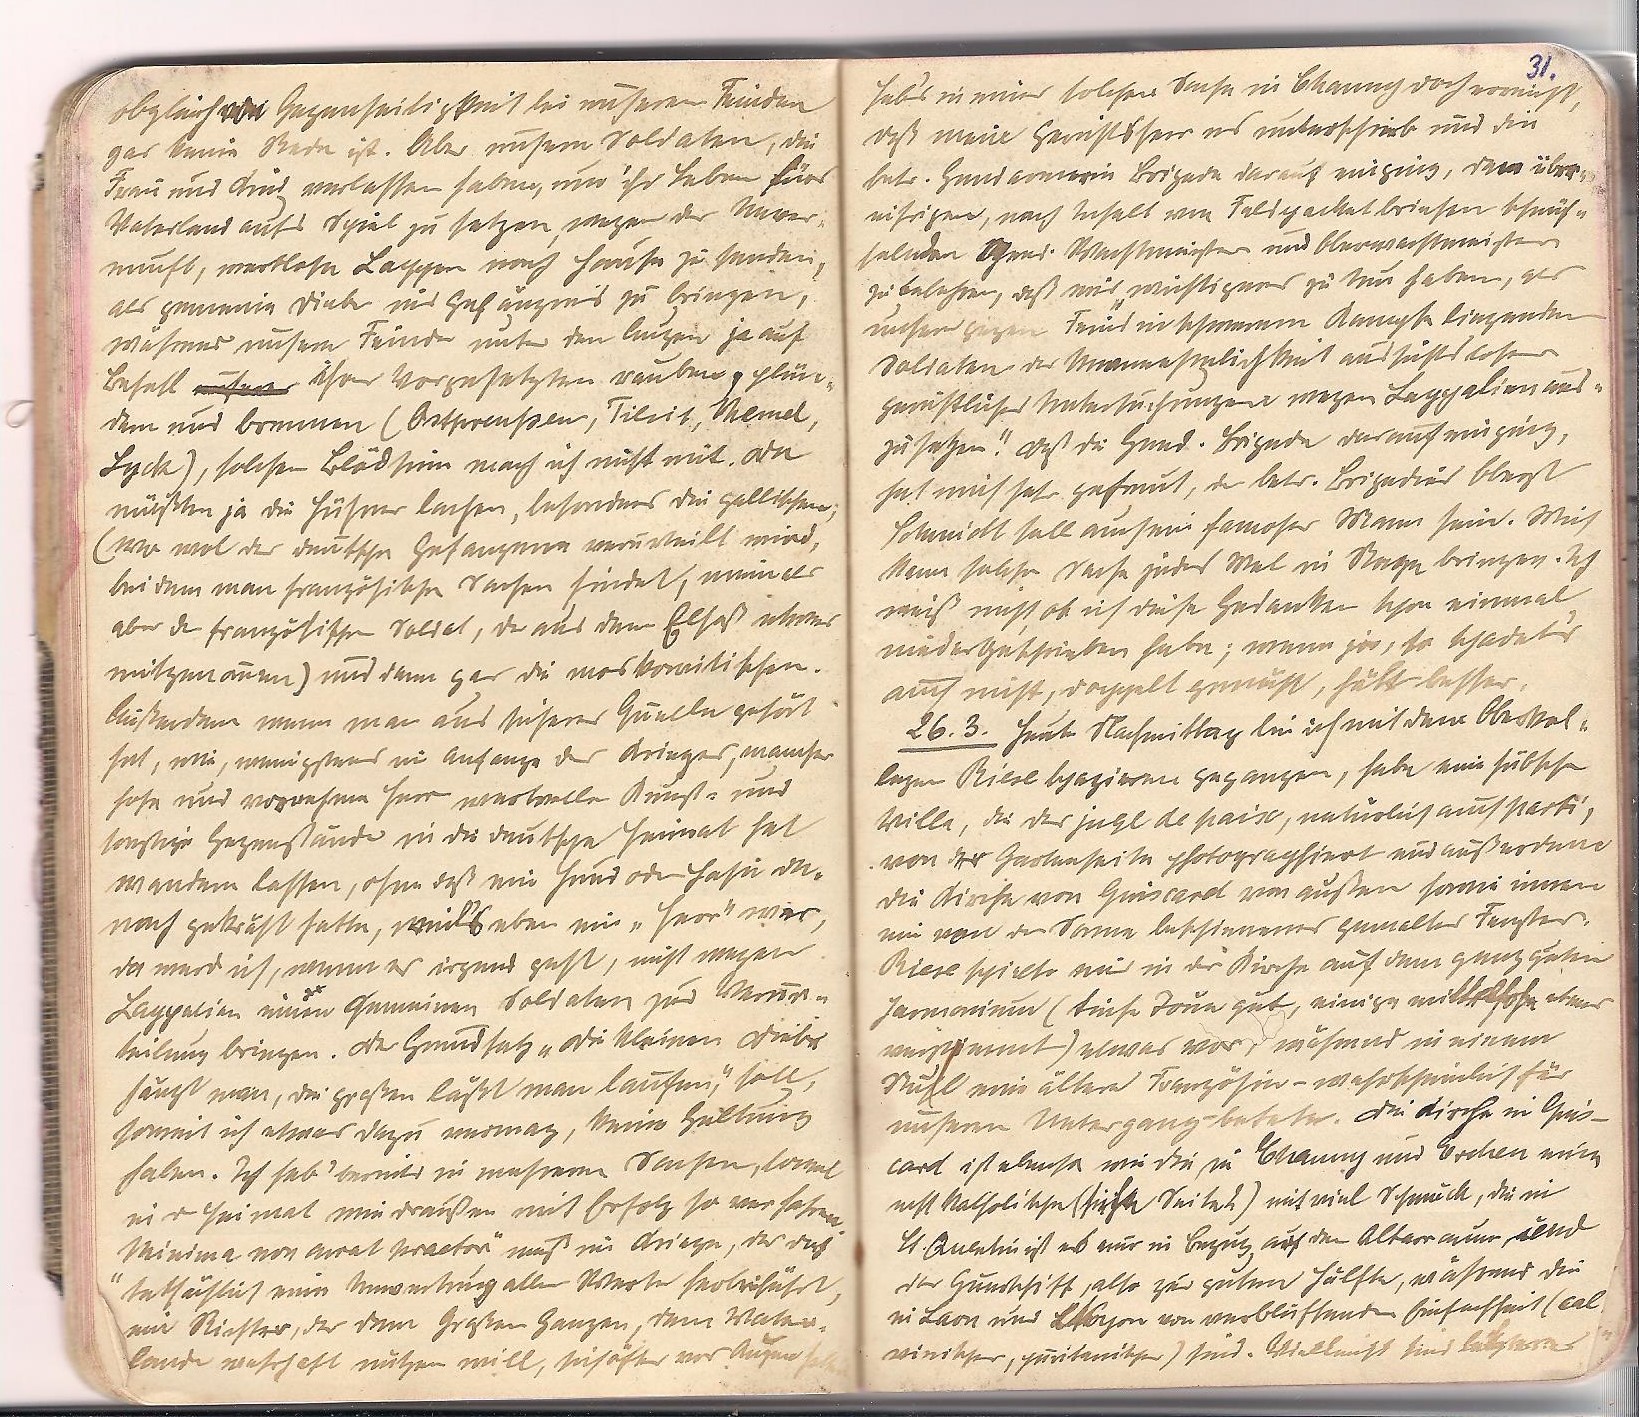 obgleich von Gegenseitigkeit bei unseren Feinden
gar keine Rede ist. Aber unsere Soldaten, die
Frau und Kind verlassen haben, um ihr Leben fürs
Vaterland aufs Spiel zu setzen, wegen der Unver-
nunft, wertlose Lappen nach Hause zu senden,
als gemeine Diebe ins Gefängnis zu bringen,
während unsere Feinde unter den Augen ja auf
Befehl ihrer Vorgesetzten rauben, plün-
dern und brennen (Ostpreußen, Tilsit, Memel,
Lyck), solchen Blödsinn mach ich nicht mit. Da
müßten ja die Hühner lachen, besonders die gallischen,
(wo wol der deutsche Gefangene verurteilt wird,
bei dem man französische Sachen findet, niemals
aber der französische Soldat, der aus dem Elsaß etwas
mitgenommen) und dann gar die moskowitischen.
Außerdem wenn man aus sicherer Quelle gehört
hat, wie, wenigstens im Anfange des Krieges, mancher
hohe und vornehme Herr wertvolle Kunst- und
sonstige Gegenstände in die deutsche Heimat hat
wandern lassen, ohne daß ein Hund oder Hahn da-
nach gekräht hätte, weil's eben ein „Herr" war,
da werd ich, wenn es irgend geht, nicht wegen
Lappalien einen Gemeinen Soldaten zur Verur-
teilung bringen. Der Grundsatz „die kleinen Diebe
hängt man, die großen läßt man laufen", soll,
soweit ich etwas dazu vermag, keine Geltung
haben. Ich hab' bereits in mehreren Sachen, sowol
in d Heimat wie draußen mit Erfolg so verfahren
"Minima non curat praetor" muß im Kriege, der das
tatsächlich eine Umwertung aller Werte herbeiführt,
ein Richter, der dem Großen Ganzen, dem Vater-
lande wahrhaft nützen will, sich öfter vor Augen
31.
hab's in einer solchen Sache in Chauny doch erreicht,
daß mein Gerichtsherr es unterschrieb und die
betr. Gendarmerie Brigade darauf einging, den über-
eifrigen, nach Inhalt von Feldpacketbriefen schnüf-
felnden Gend. Wachtmeister und Oberwachtmeister
zu belehren, daß wir „wichtigeres zu tun haben, als
unsere gegen Feind in schwerem Kampfe liegenden
Soldaten der Unannehmlichkeit aussichtsloser
gerichtlicher Untersuchungen wegen Lappalien aus-
zusetzen". Daß die Gend. Brigade darauf einging,
hat mich sehr gefreut, der betr. Brigadier Oberst
Schmidt soll auch ein famoser Mann sein. Mich
kann solche Sache jedes Mal in Rage bringen. Ich
weiß nicht ob ich diese Gedanken schon einmal
niedergeschrieben habe; wenn ja, so schadet's
auch nicht, doppelt genäht, hält besser.
26. 3. Heute Nachmittag bin ich mit dem Oberkol-
legen Riese spazieren gegangen, habe eine hübsche
Villa, die des juge de paix, natürlich auch parti,
von der Gartenseite photographiert und außerdem
die Kirche von Guiscard von außen sowie innen
ein von der Sonne beschienenes gemaltes Fenster.
Riese spielte mir in der Kirche auf dem ganz guten
Harmonium (tiefe Töne gut, einige mittelhohe etwas
verstimmt) etwas vor, während in einem
Stuhl eine ältere Französin - wahrscheinlich für
unseren Untergang - betete. Die Kirche in Guis-
card ist ebenso wie die in Chauny und Erchen eine
echt katholische mit viel Schmuck, die in
St. Quentin ist es nur in Bezug auf den Altarraum und
der Querschiff, also zur guten Hälfte, während die
in Laon und Noyon von verblüffender Einfachheit (cal
vinischer, puritanischer) sind. Vielleicht sind letztere